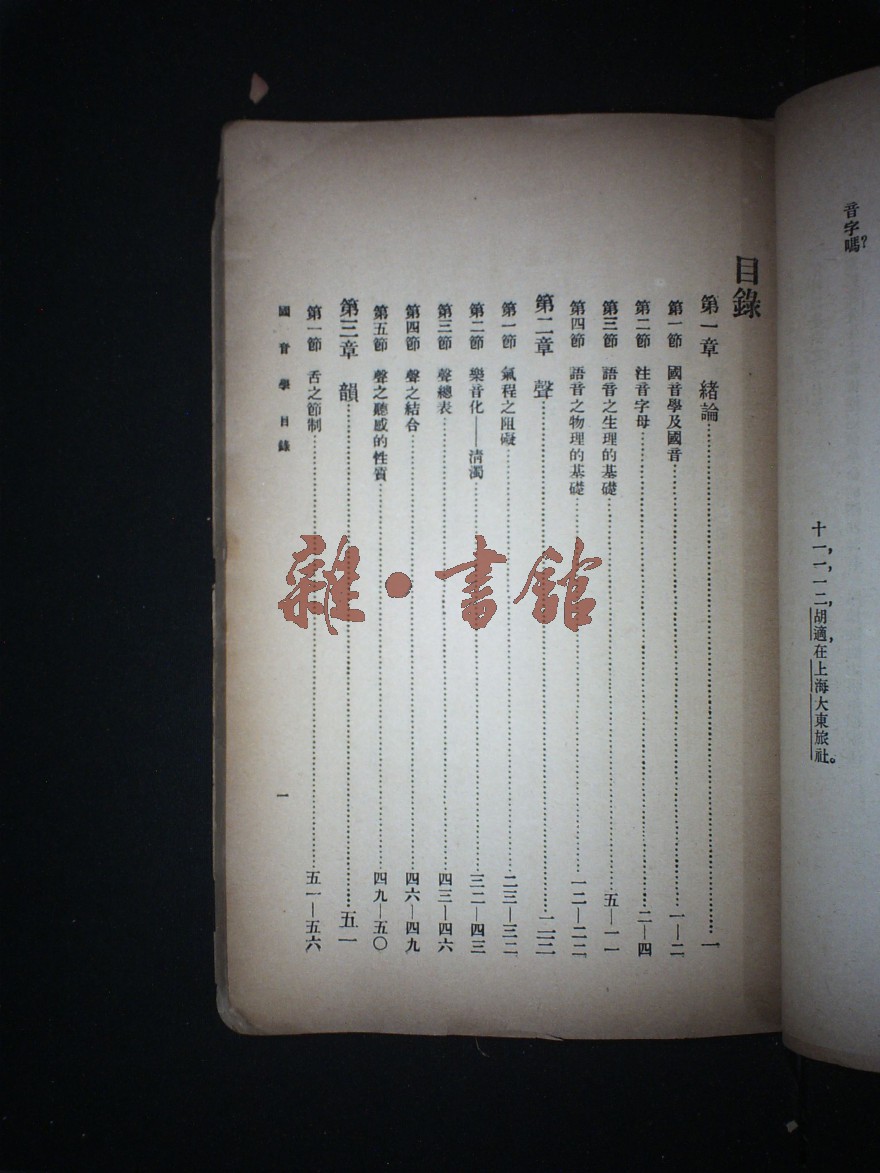 音字嗎?
十一，一，一二，胡適在上海大東旅社。
目錄
第一章 緒論……一
第一節 國音學及國音……一—二
第二節 注音字母……二—四
第三節 語音之生理的基礎……五—一一
第四節 語音之物理的基礎……一二—二二
第二章 聲……二三
第一節 氣程之阻礙……二三—三二
第二節 樂音化——清濁……三二—四三
第三節 聲總表……四三—四六
第四節 聲之結合……四六—四九
第五節 聲之聽感的性質……四九—五〇
第三章 韻……五一
第一節 舌之節制……五一—五六
國音學 目錄
一
雜·書館